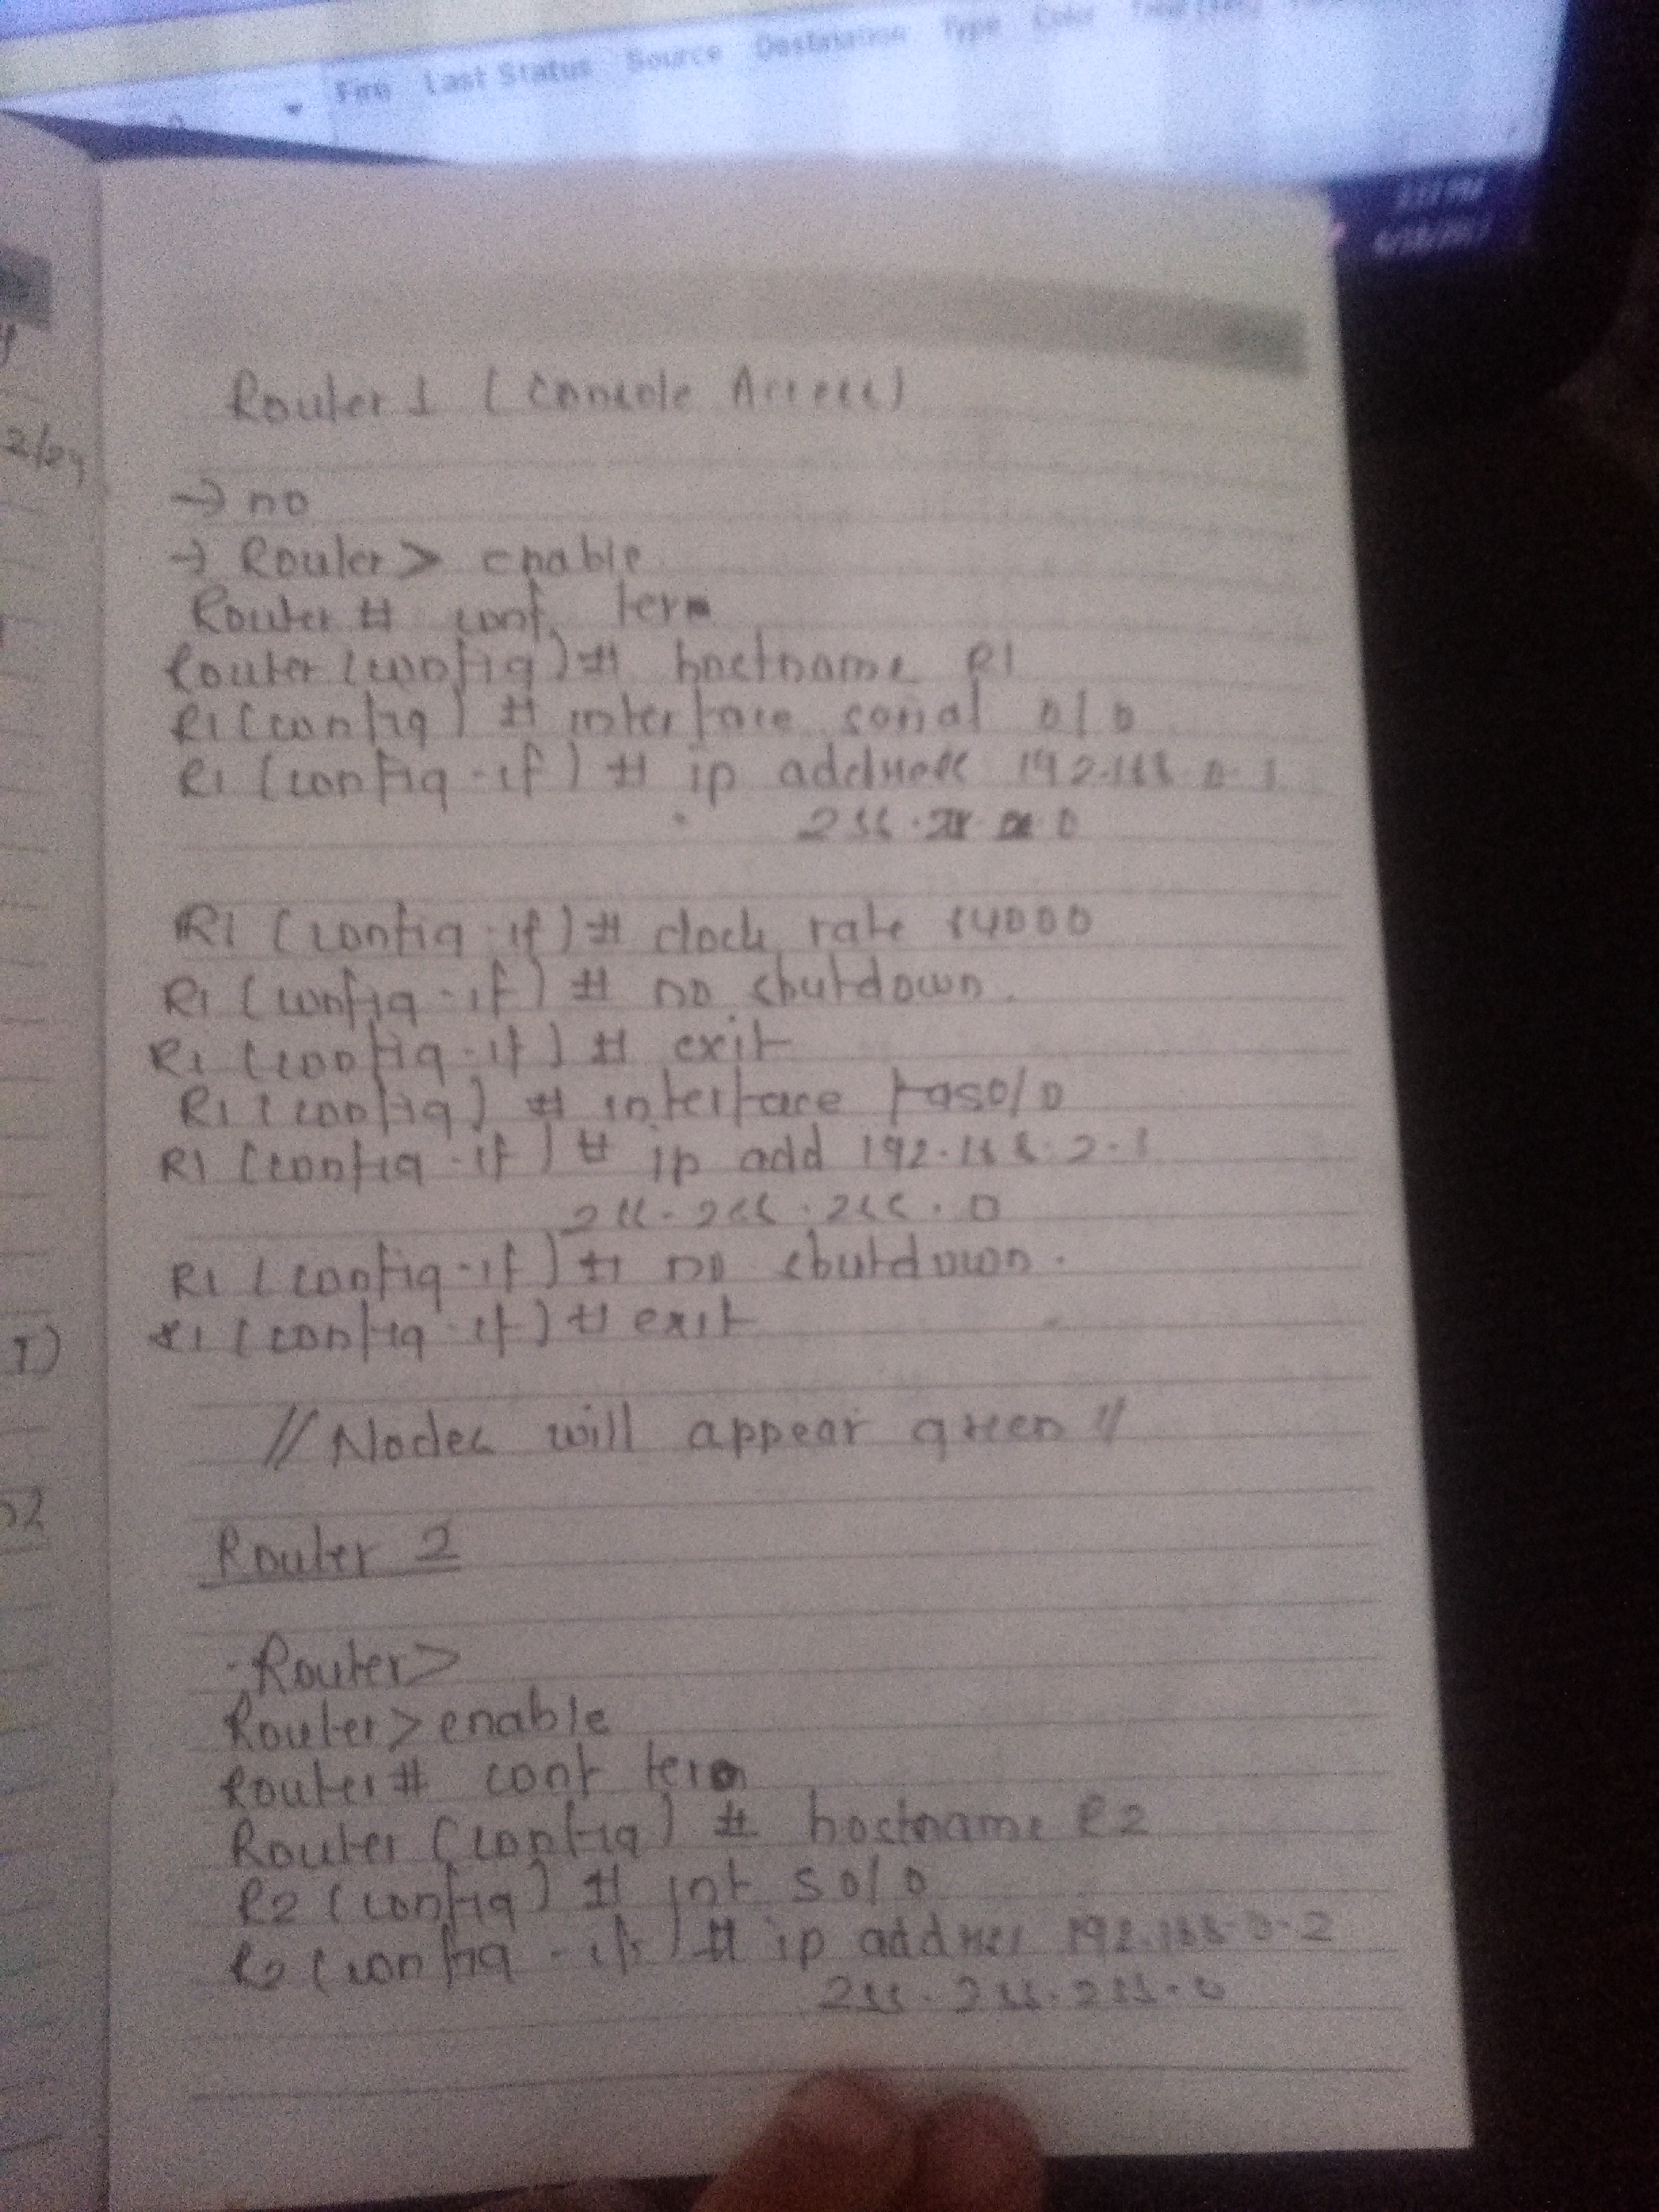 Fire Last Status Source Destination Type Color
Router 1 (Console Access)
→ no
→ Router> enable
Router # conf term
Router (config) # hostname R1
R1 (config) # interface serial 0/0
R1 (config-if) # ip address 192.168.0.1
255.255.255.0
R1 (config-if) # clock rate 64000
R1 (config-if) # no shutdown.
R1 (config-if) # exit
R1 (config) # interface fas0/0
R1 (config-if) # ip add 192.168.2.1
255.255.255.0
R1 (config-if) # no shutdown.
R1 (config-if) # exit
// Nodes will appear green //
Router 2
Router>
Router>enable
Router# conf term
Router (config) # hostname R2
R2 (config) # int s0/0
R2 (config-if) # ip address 192.168.0.2
255.255.255.0